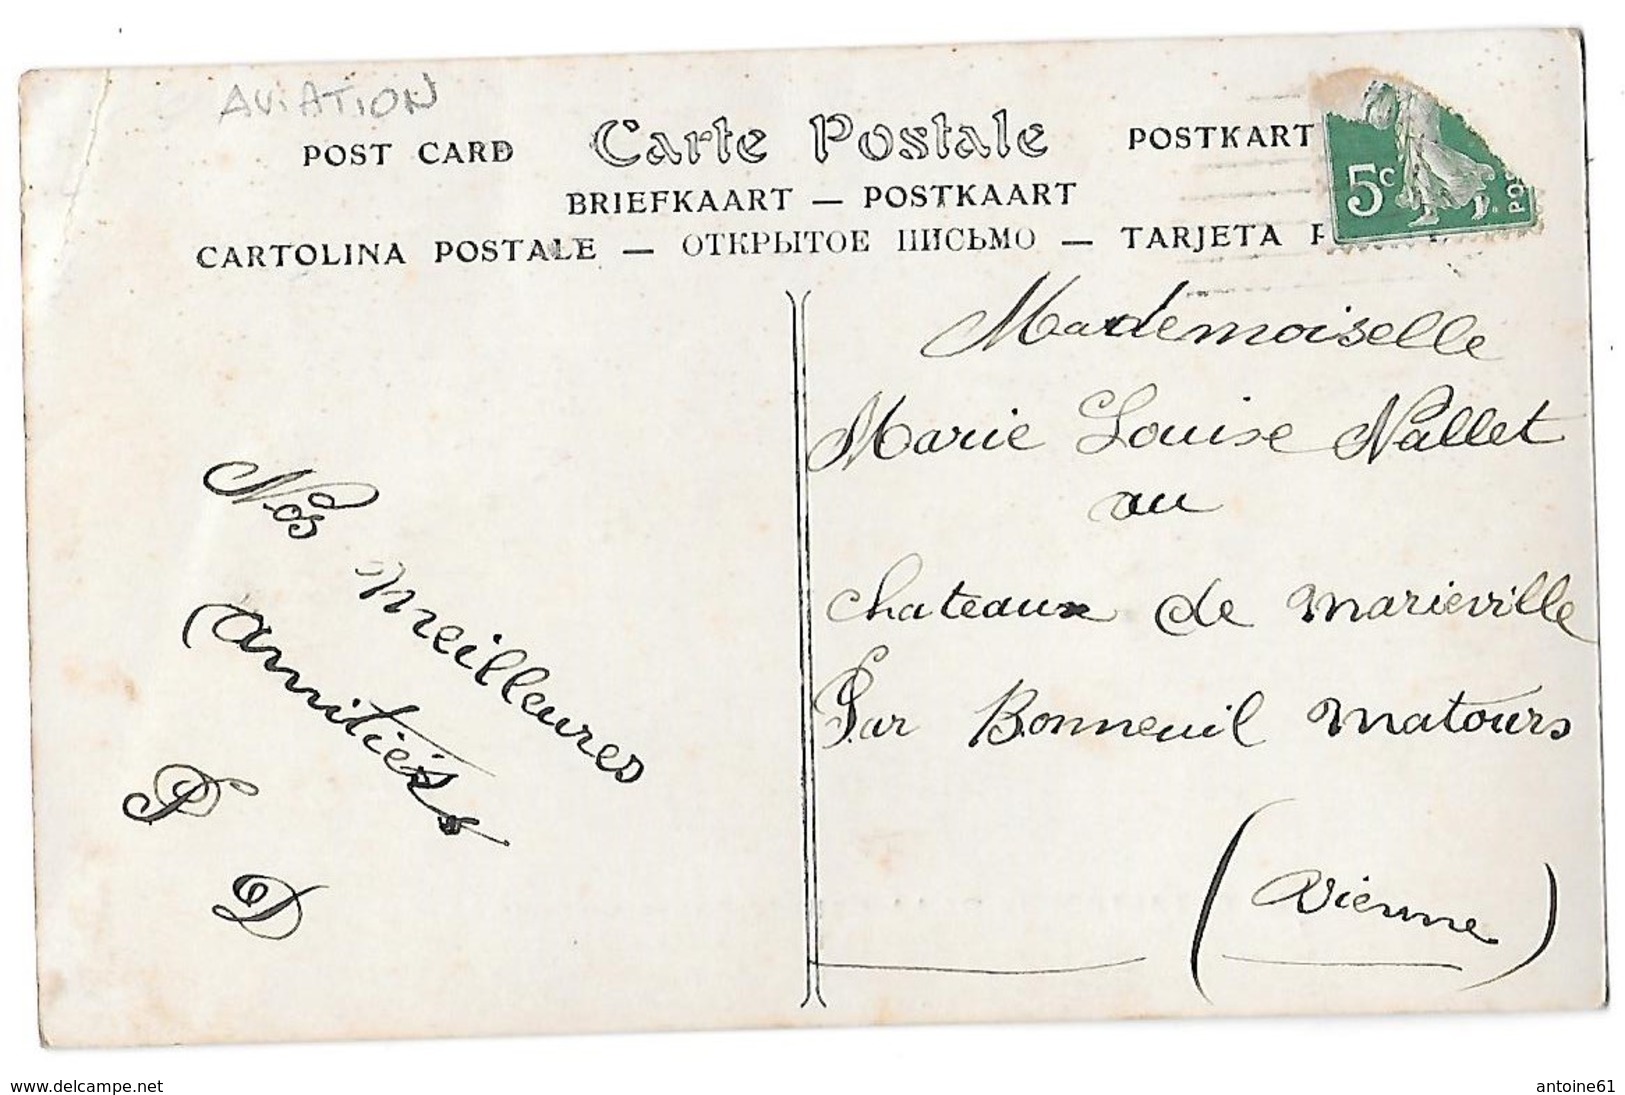 AViATION
POST CARD Carte Postale POSTKART
BRIEFKAART — POSTKAART
CARTOLINA POSTALE — ОТКРЫТОЕ ПИСЬМО — TARJETA P
5c
PO
Mademoiselle
Marie Louise Nallet
au
chateaux de Marieville
Par Bonneuil Matours
(Vienne)
Nos meilleures
amitiés
P
D
www.delcampe.net
antoine61